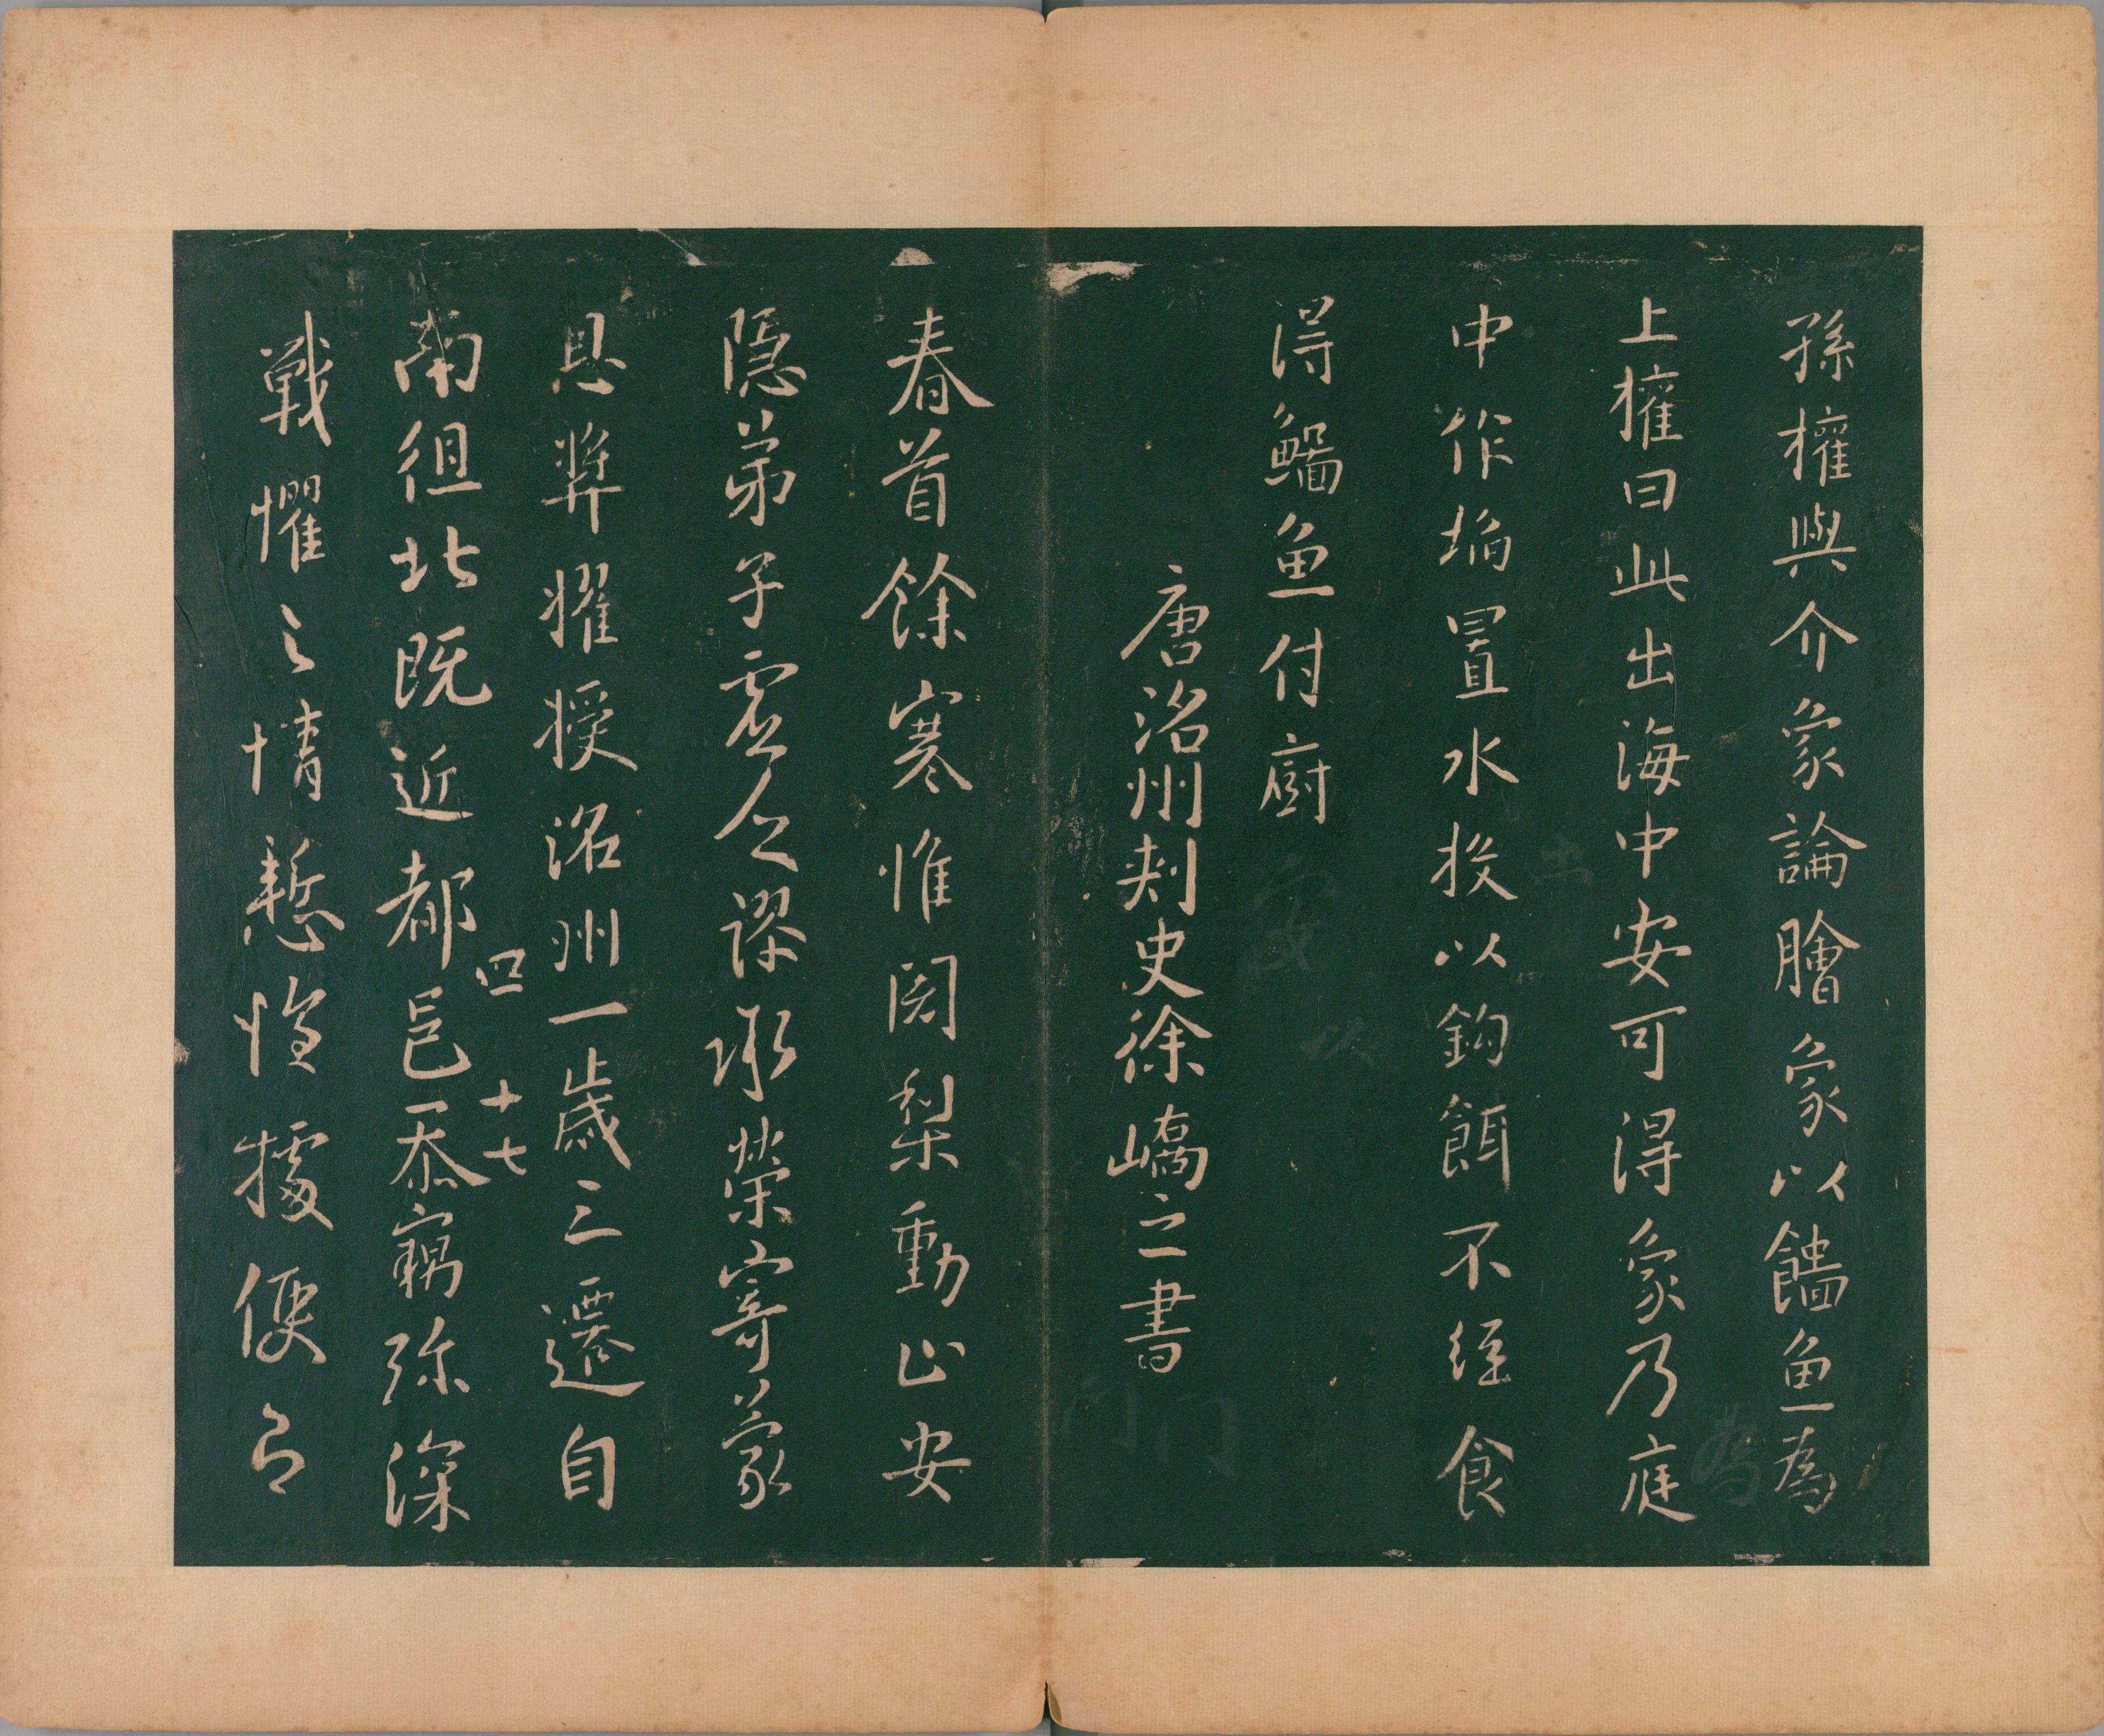 孫權與介象論膾象以鰡魚為
上權曰此出海中安可得象乃庭
中作埳置水投以鈎餌不經食
得鯔魚付廚
唐洺州刾史徐嶠之書
春首餘寒惟闍梨動止安
隱弟子虛乏謬承榮寄蒙
恩獎擢授洺州一歲三遷自
南徂北既近都邑忝竊弥深
四 十七
戰懼之情慙惕據便以